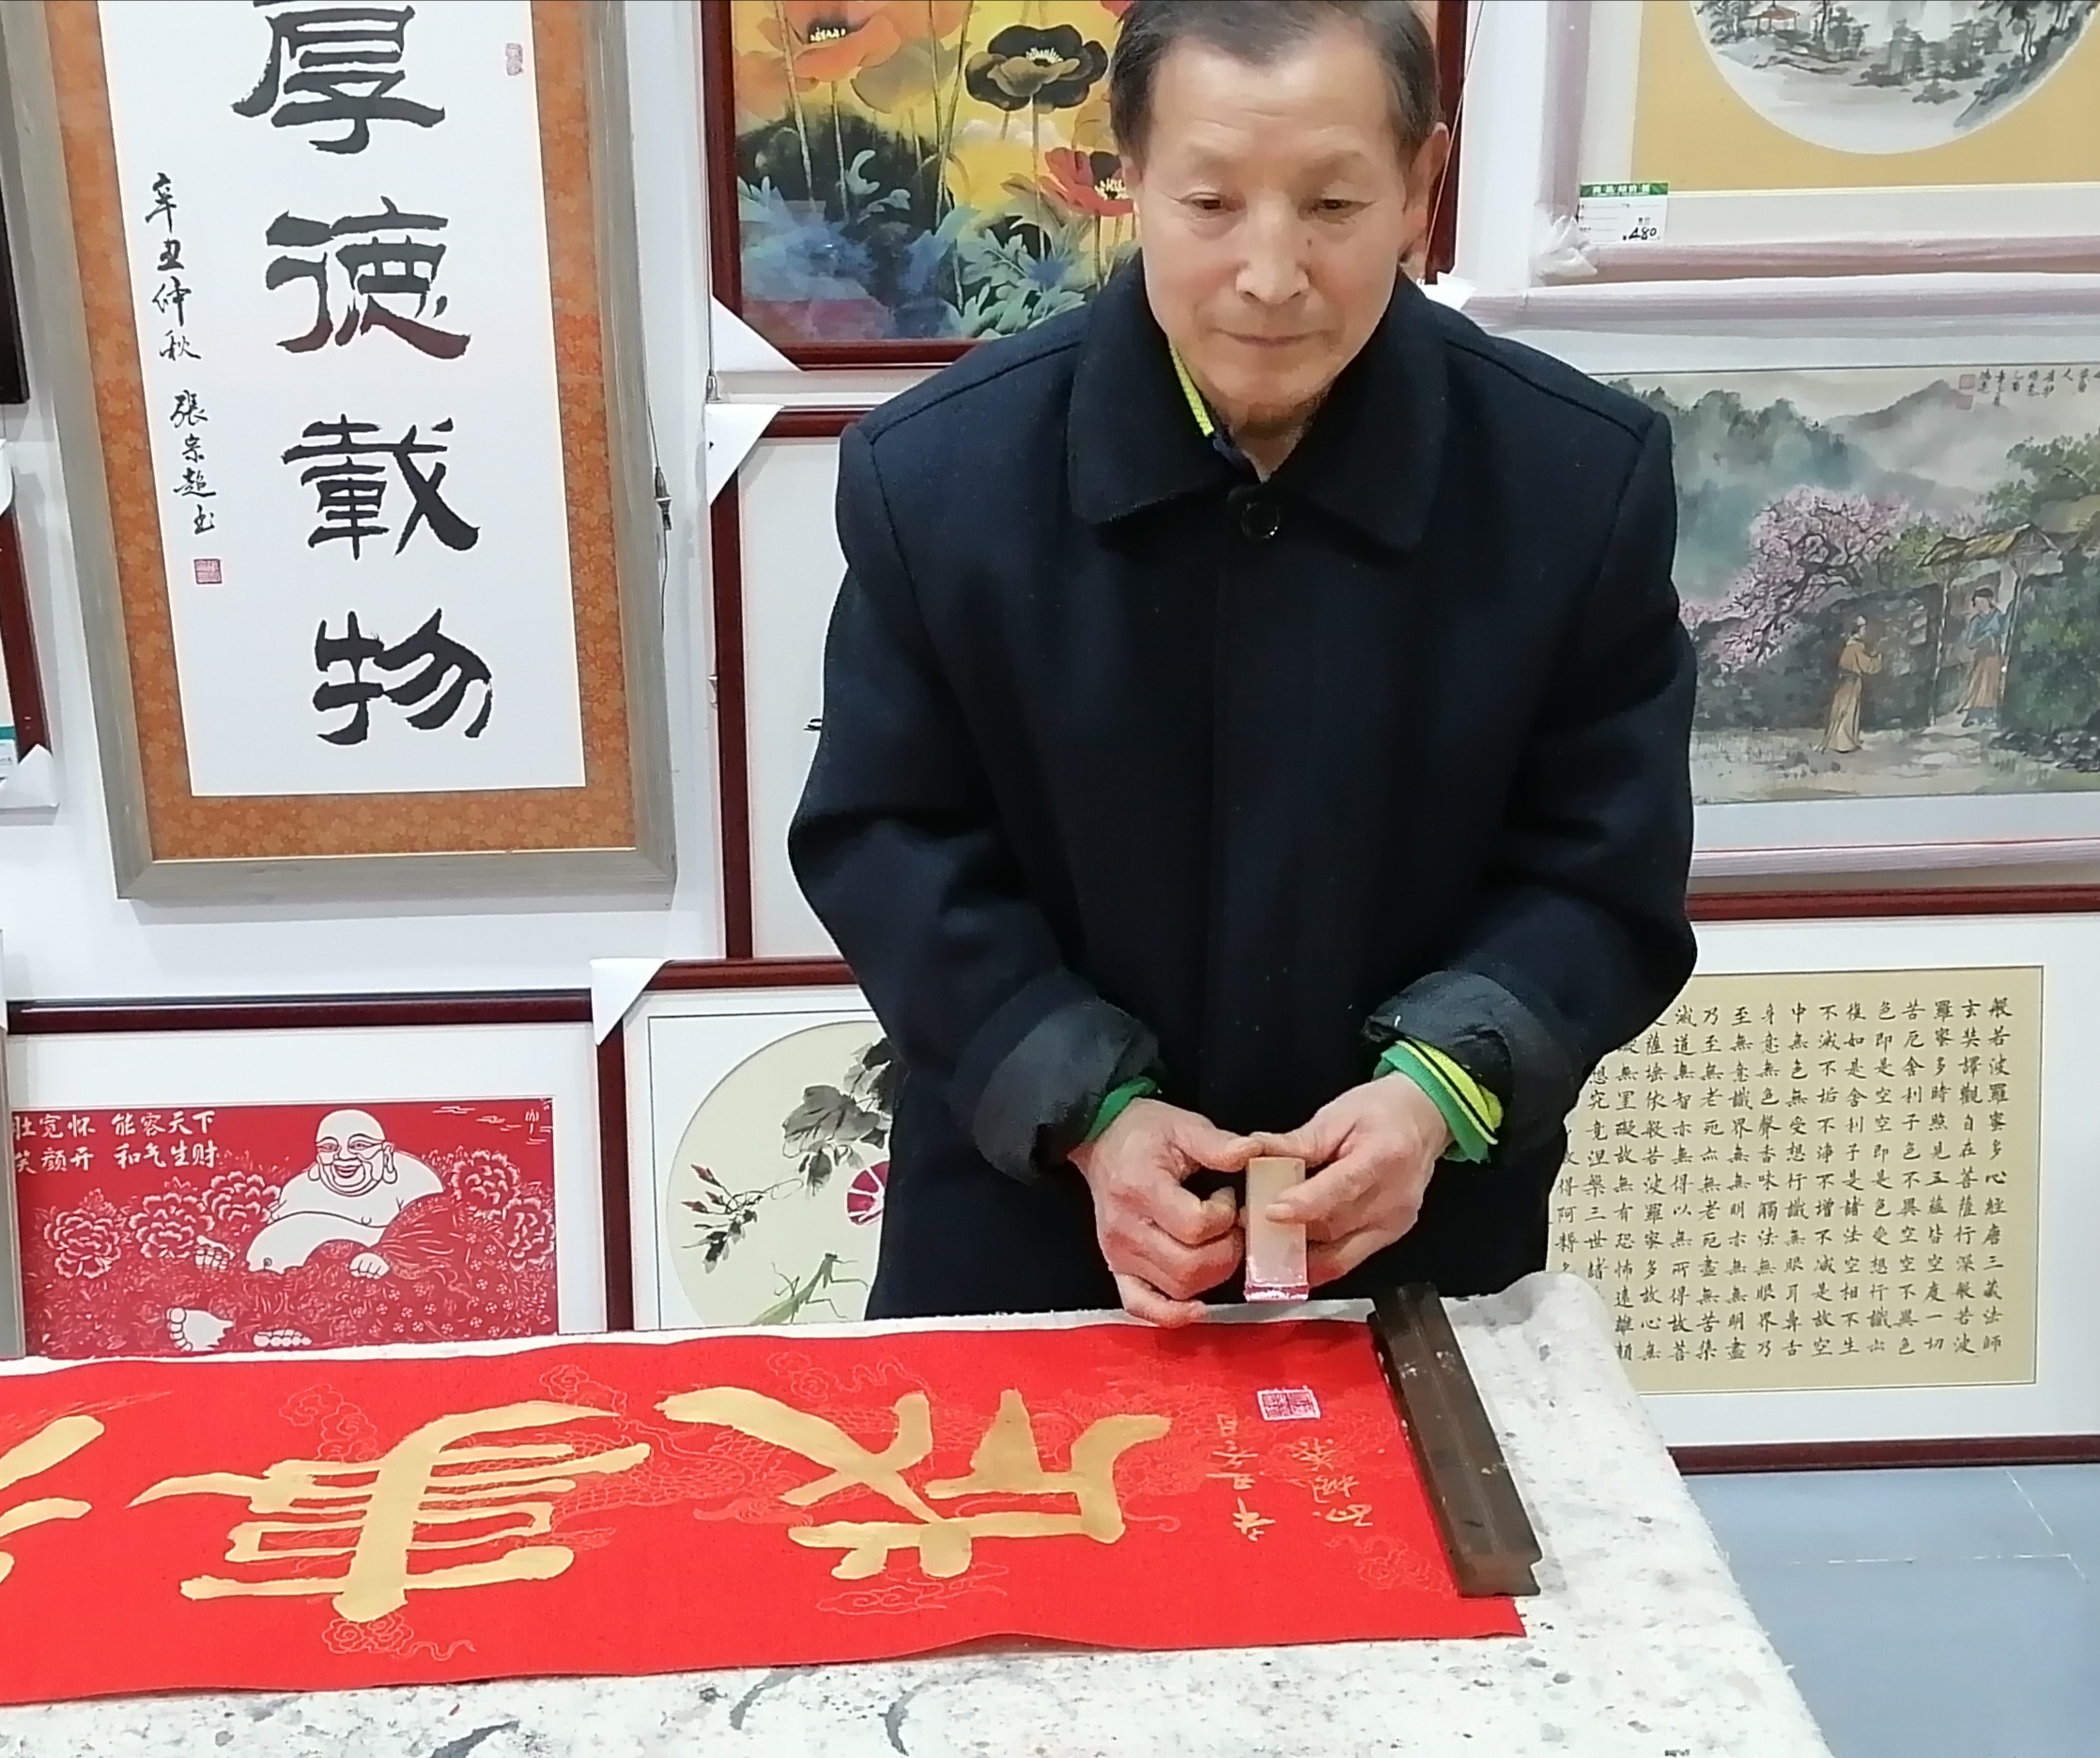 厚德載物
辛丑仲秋 張宗超书
肚宽怀 能容天下
笑颜开 和气生财
480
般若波羅蜜多心經唐三藏法師
玄奘譯觀自在菩薩行深般若波
羅蜜多時照見五蘊皆空度一切
苦厄舍利子色不異空空不異色
色即是空空即是色受想行識亦
復如是舍利子是諸法空相不生
不滅不垢不淨不增不减是故空
中無色無受想行識無眼耳鼻舌
身意無色聲香味觸法無眼界乃
至無意識界無無明亦無無明盡
乃至無老死亦無老死盡無苦集
滅道無智亦無得以無所得故菩
薩埵依般若波羅蜜多故心無
礙無罣礙故無有恐怖遠離顛
想究竟涅槃三世諸
得阿耨
成事
辛丑冬月